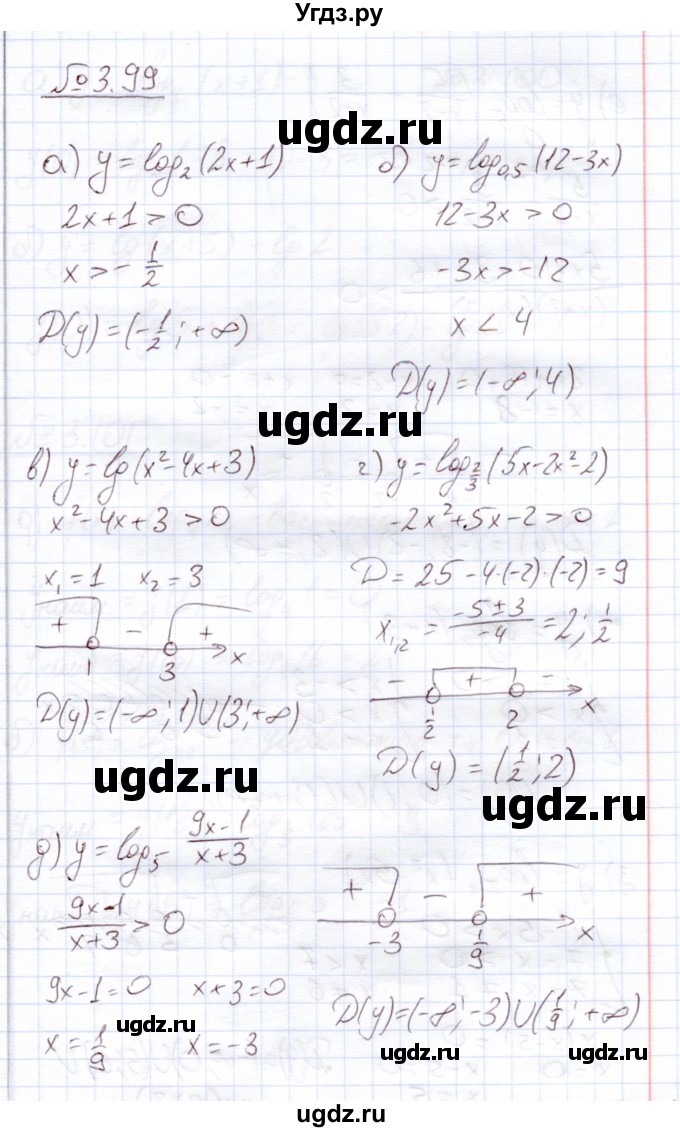 Угдз.ру
№3.99
ugdz.ru
а) y = log₂(2x+1)
2x+1 > 0
x > -1/2
D(y) = (-1/2; +∞)
б) y = log₀,₅(12-3x)
12-3x > 0
-3x > -12
x < 4
D(y) = (-∞; 4)
ugdz.ru
в) y = lg(x²-4x+3)
x²-4x+3 > 0
x₁ = 1 x₂ = 3
+ - +
1 3 x
D(y) = (-∞; 1)U(3; +∞)
г) y = log₂/₃(5x-2x²-2)
-2x²+5x-2 > 0
D = 25-4·(-2)·(-2) = 9
x₁,₂ = (-5±3)/(-4) = 2; 1/2
- + -
1/2 2 x
D(y) = (1/2; 2)
ugdz.ru
ugdz.ru
д) y = log₅ (9x-1)/(x+3)
(9x-1)/(x+3) > 0
9x-1=0 x+3=0
x = 1/9 x = -3
+ - +
-3 1/9 x
D(y) = (-∞; -3)U(1/9; +∞)
ugdz.ru
ugdz.ru
ugdz.ru
ugdz.ru